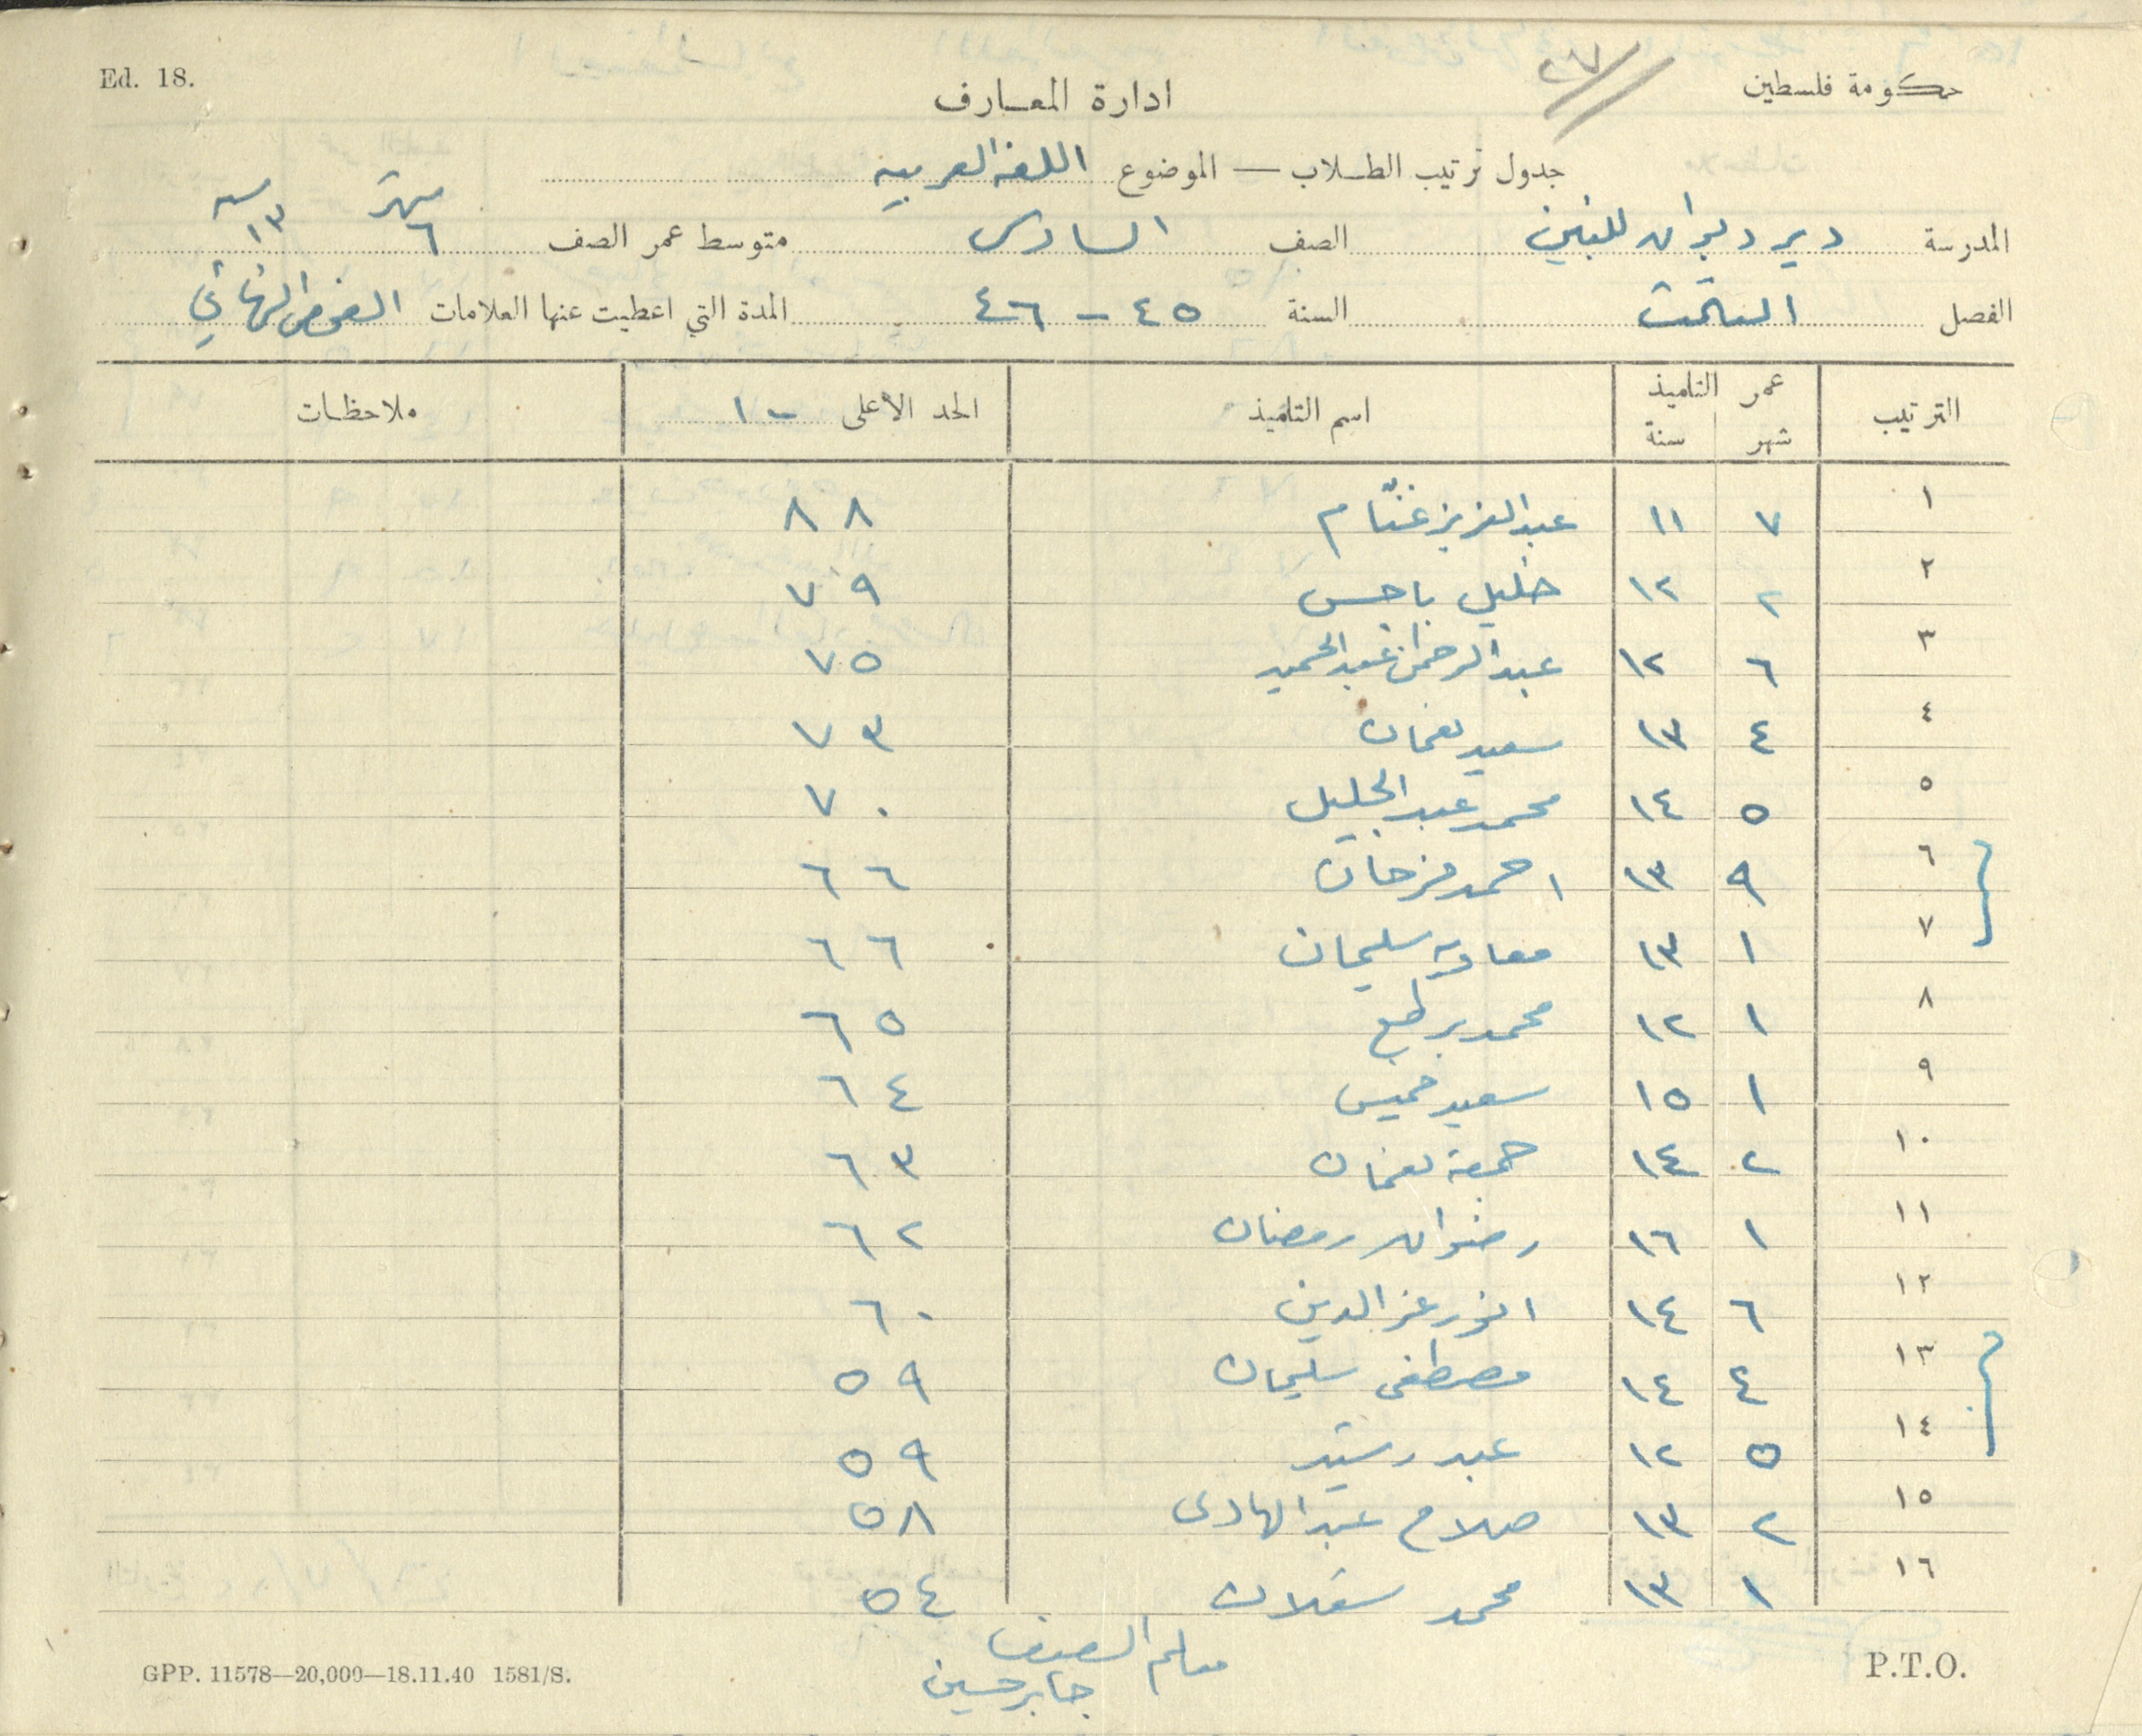 Ed. 18.
٢٦٧
حكومة فلسطين
ادارة المعارف
جدول ترتيب الطلاب — الموضوع اللغة العربيه
المدرسة دير دبوان للبنين الصف السادس متوسط عمر الصف ٦ شهر ١٣ سنه
الفصل الثالث السنة ٤٥ - ٤٦ المدة التي اعطيت عنها العلامات الفحص النهائي
الترتيب عمر التلميذ اسم التلميذ الحد الاعلى ١٠٠ ملاحظات
شهر سنة
١ ٧ ١١ عبد العزيز غنّام ٨٨
٢ ٢ ١٢ خليل باجس ٧٩
٣ ٦ ١٢ عبد الرحمن عبد الحميد ٧٥
٤ ٤ ١٣ سعيد نعمان ٧٣
٥ ٥ ١٤ محمد عبد الجليل ٧٠
٦ ٩ ١٣ احمد فرحان ٦٦
٧ ١ ١٣ معاويه سليمان ٦٦
٨ ١ ١٢ محمد ٦٥
٩ ١ ١٥ سعيد خميس ٦٤
١٠ ٢ ١٤ جمعة نعمان ٦٣
١١ ١ ١٦ رضوان رمضان ٦٢
١٢ ٦ ١٤ انور عز الدين ٦٠
١٣ ٤ ١٤ مصطفى سليمان ٥٩
١٤ ٥ ١٢ عبد رشيد ٥٩
١٥ ٢ ١٣ صلاح عبد الهادى ٥٨
١٦ ١ ١٣ محمد ٥٤
معلم الصف
جابر حسين
GPP. 11578—20,000—18.11.40 1581/S.
P.T.O.